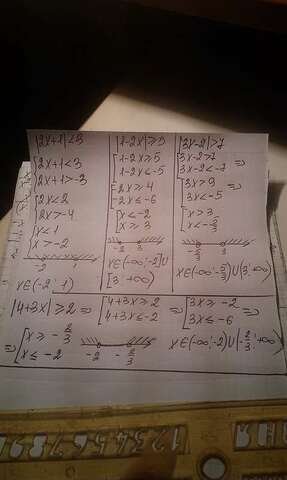 |2x+1|<3
[2x+1<3
2x+1>-3
[2x<2
2x>-4
[x<1
x>-2
-2 1
x∈(-2;1)
|1-2x|≥5
[1-2x≥5
1-2x≤-5
[-2x≥4
-2x≤-6
[x≤-2
x≥3
-2 3
x∈(-∞;-2]∪
[3;+∞)
|3x-2|>7
[3x-2>7
3x-2<-7 ⇒
[3x>9
3x<-5 ⇒
[x>3
x<-5/3
-5/3 3
x∈(-∞;-5/3)∪(3;+∞)
|4+3x|≥2 ⇒ [4+3x≥2
4+3x≤-2 ⇒ [3x≥-2
3x≤-6
⇒ [x≥-2/3
x≤-2
-2 -2/3
x∈(-∞;-2)∪[-2/3;+∞)